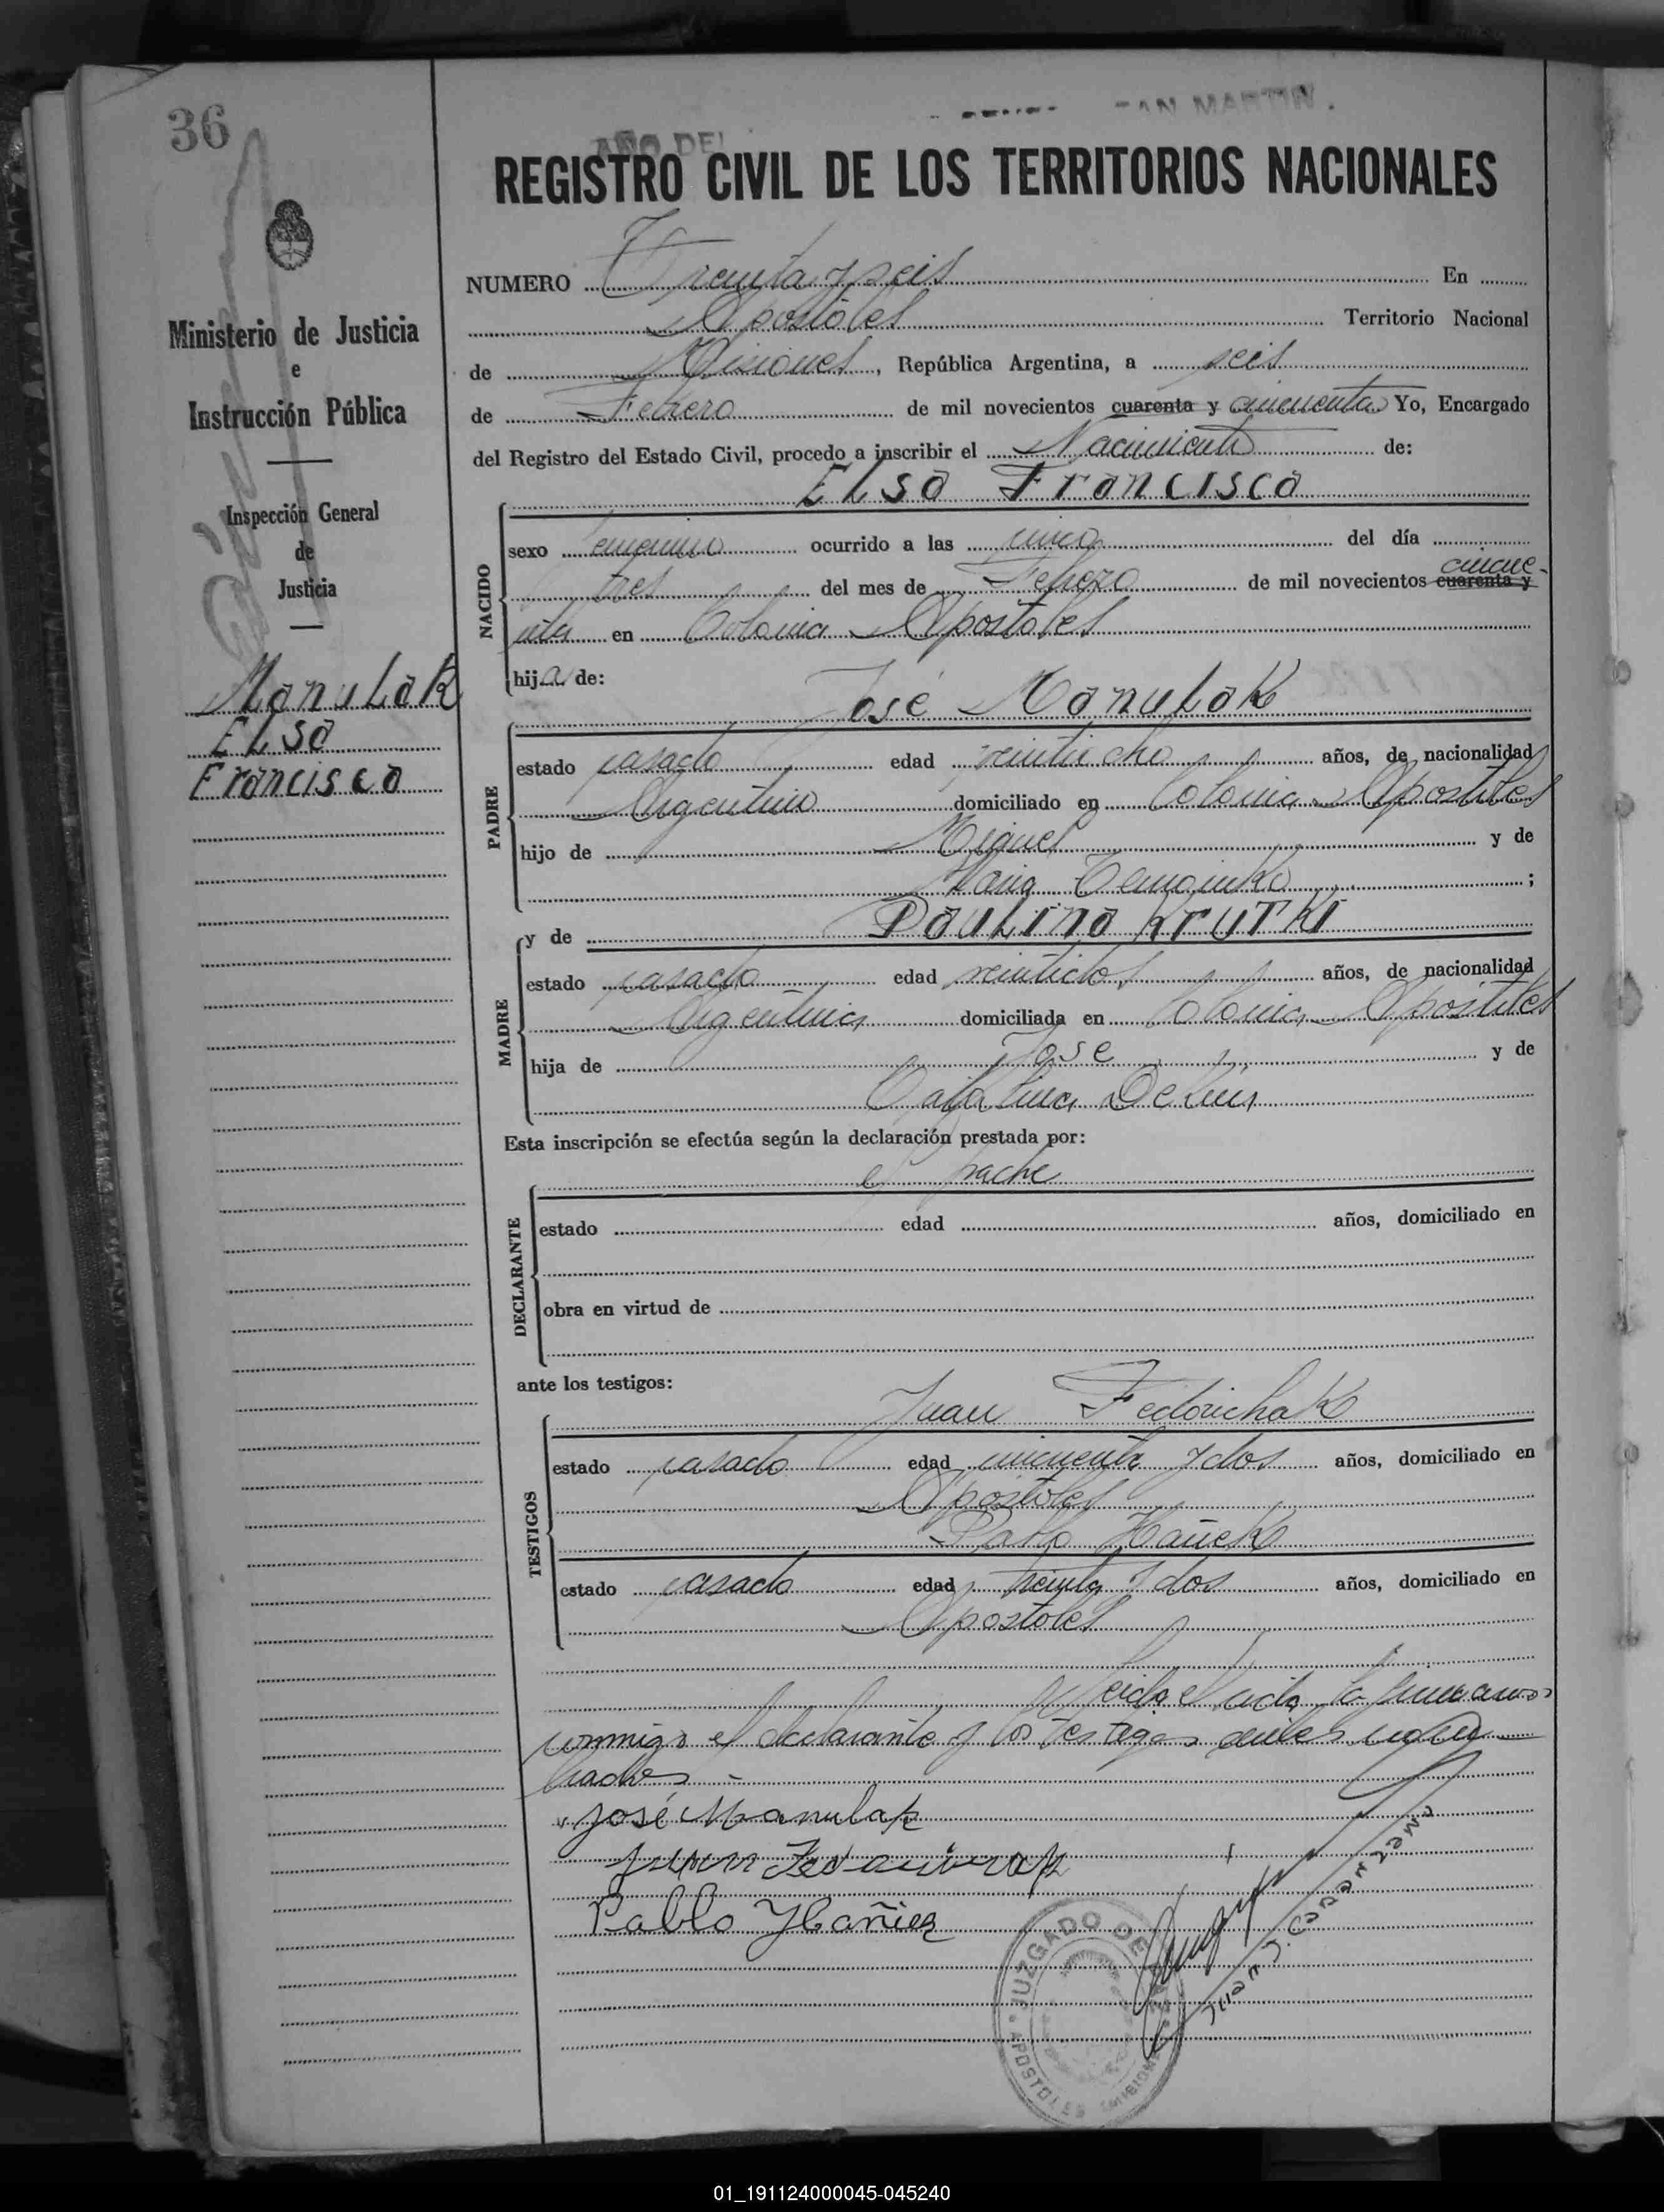 36
AÑO DEL SAN MARTIN.
REGISTRO CIVIL DE LOS TERRITORIOS NACIONALES
Ministerio de Justicia
e
Instrucción Pública
Inspección General
de
Justicia
Manulak
Elsa
Francisca
NUMERO Treinta y seis En
Apostoles Territorio Nacional
de Misiones, República Argentina, a seis
de Febrero de mil novecientos cuarenta y cincuenta Yo, Encargado
del Registro del Estado Civil, procedo a inscribir el Nacimiento de:
Elsa Francisca
NACIDO
sexo femenino ocurrido a las cinco del día
tres del mes de Febrero de mil novecientos cuarenta y cincue-
nta en Colonia Apostoles
hija de:
José Manulak
PADRE
estado casado edad veintiocho años, de nacionalidad
Argentino domiciliado en Colonia Apostoles
hijo de Miguel y de
Maria ;
y de Paulina Krutki
MADRE
estado casada edad veintidos años, de nacionalidad
Argentina domiciliada en Colonia Apostoles
hija de José y de
Catalina
Esta inscripción se efectúa según la declaración prestada por:
el padre
DECLARANTE
estado edad años, domiciliado en
obra en virtud de
ante los testigos:
Juan Fedorichak
TESTIGOS
estado casado edad cincuenta y dos años, domiciliado en
Apostoles
Pablo
estado casado edad treinta y dos años, domiciliado en
Apostoles
Leida el acta la firmaron
conmigo el declarante y los testigos antes
José Manulak
Juan
Pablo Ybañiez
JUZGADO DE PAZ
APOSTOLES MISIONES
01_191124000045-045240